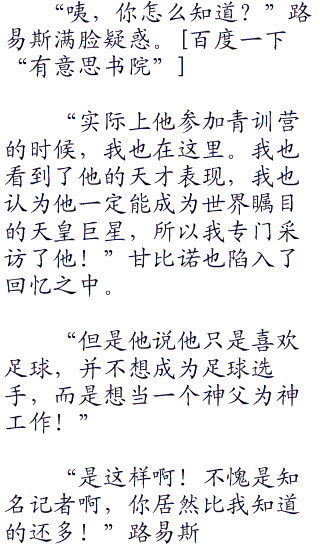 “咦，你怎么知道？”路
易斯满脸疑惑。[百度一下
“有意思书院”]
“实际上他参加青训营
的时候，我也在这里。我也
看到了他的天才表现，我也
认为他一定能成为世界瞩目
的天皇巨星，所以我专门采
访了他！”甘比诺也陷入了
回忆之中。
“但是他说他只是喜欢
足球，并不想成为足球选
手，而是想当一个神父为神
工作！”
“是这样啊！不愧是知
名记者啊，你居然比我知道
的还多！”路易斯